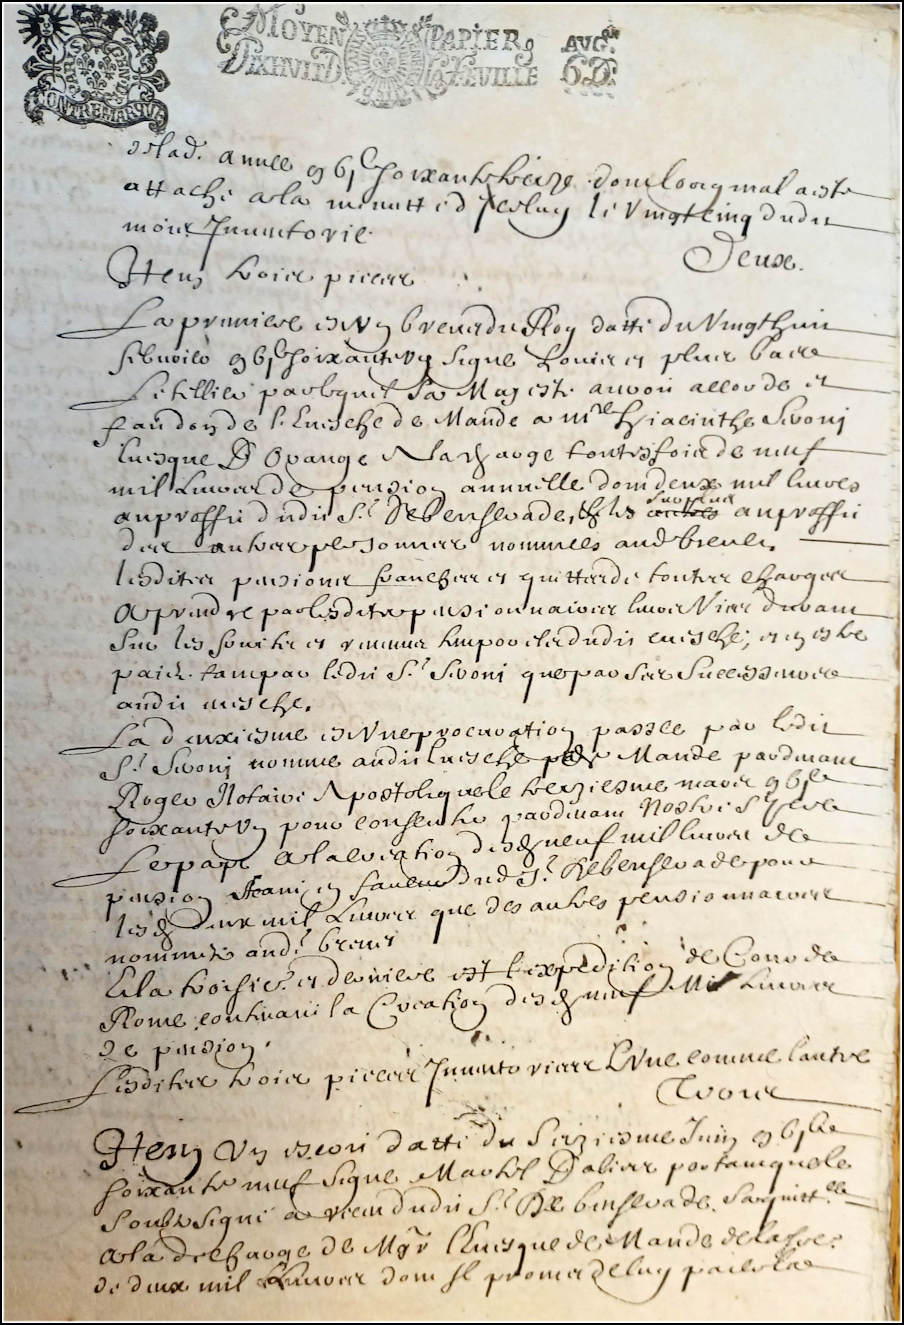 PARIS GEND
CONTREMARQVE
MOYEN PAPIER
DIXHVIT D LA FEVILLE
AVGon
6D
de lad. annee gbjc soixante treize dont loriginal a este
attaché a la minutte d Iceluy le Vingt cinq dudit
mois Inventorié.
Deux.
Item trois pieces
La premiere est Vn brevet du Roy datté du Vingthuit
febvrier gbjc soixante vn signé Louis et plus bas
Letellier par lequel Sa Majesté auroit accordé et
faict don de l'Euesché de Mande a mre Hiacinthe Serony
Euesque D Orange A la charge touttesfois de neuf
mil liures de pension annuelle dont deux mil liures
au proffit dudit Sr. De Benserade, & les surplus au proffit
des autres personnes nommées aud brevet.
lesdites pensions franches et quittes de toutes charges
A prendre par lesdits pensionnaires leurs Vies durant
sur les fruits et revenus temporels dudit euesché, et en estre
paiez tant par ledit Sr. Serony que par ses successeurs
audit euesché.
La deuxiesme est Vne procuration passée par ledit
Sr. Serony nommé audit Euesché de Mande pardevant
Roger Notaire Apostolique le treziesme mars gbjc
soixante Vn pour consentir pardevant Nostre St Pere
Le pape a la creation desd neuf mil liures de
pension scavoir en faveur dud Sr. De Benserade pour
lesd deux mil Liures que des autres pensionnaires
nommés aud. brevet
Et la troisie. et derniere est l'expedition de Cour de
Rome contenant la Creation desd neuf Mil Liures
de pension.
Lesdites trois pieces Inventoriees L'Vne comme l'autre
Trois
Item Vn escrit datté du Seiziesme Juin gbjc
soixante neuf signé Martel D'aliers portant que le
soubsigné a receu dudit Sr. De Benserade sa quittce
a la descharge de Mgr l'Euesque de Mande de la so.
de deux mil Liures dont Il promet de luy